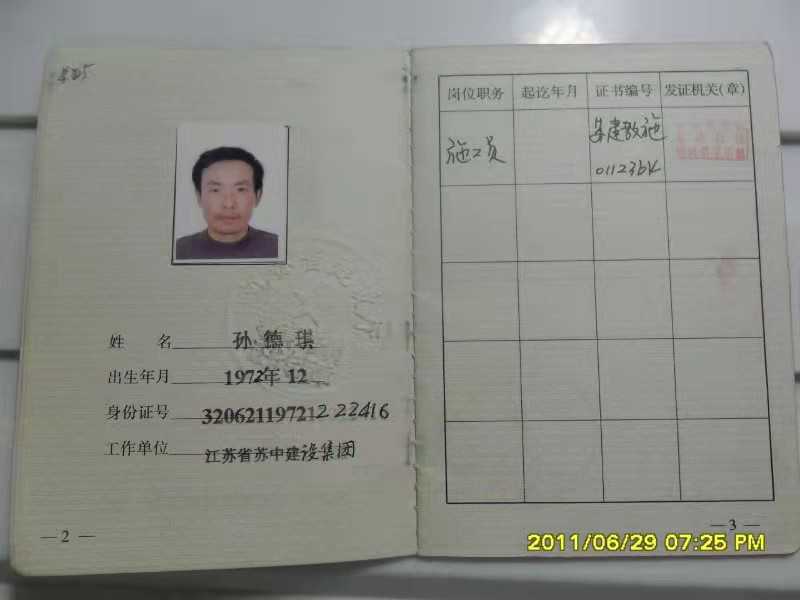 姓 名 孙德琪
出生年月 1972年12
身份证号 320621197212222416
工作单位 江苏省苏中建设集团
— 2 —
岗位职务 起讫年月 证书编号 发证机关(章)
施工员 苏建教施
0112364
— 3 —
2011/06/29 07:25 PM